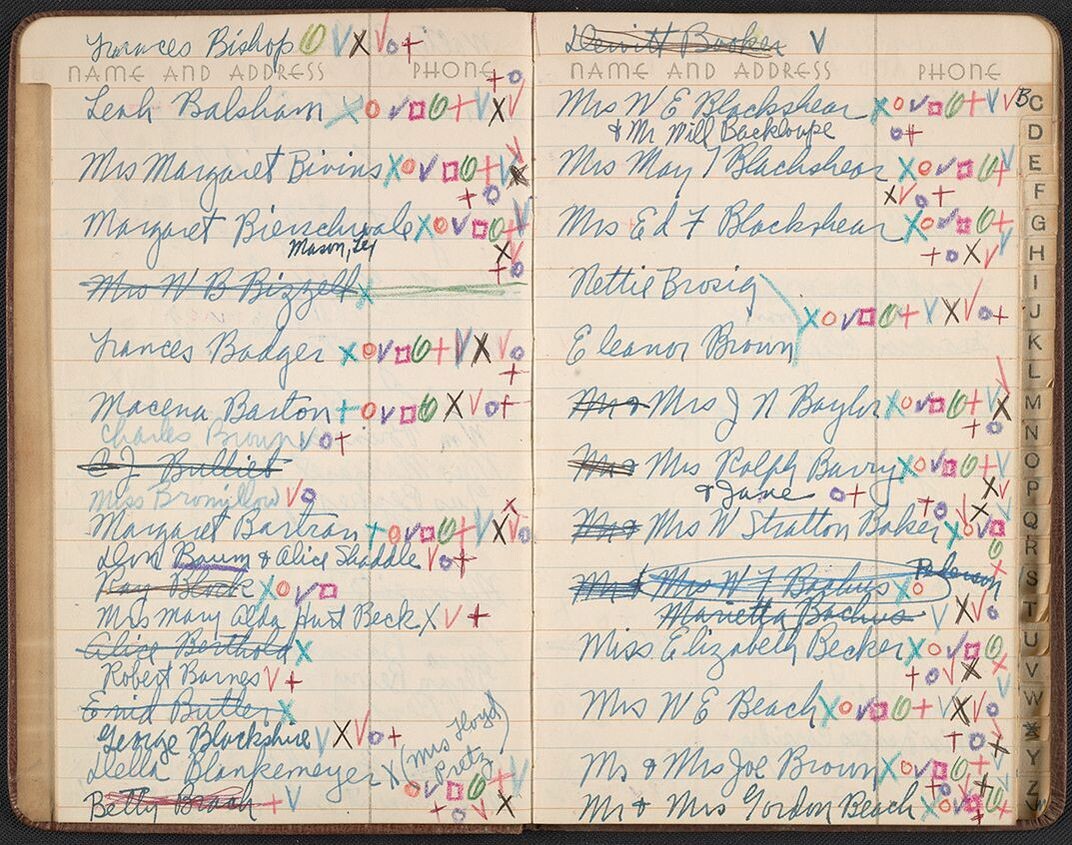 Frances Bishop
NAME AND ADDRESS PHONE
Leah Balsham
Mrs Margaret Bivins
Margaret Bierschwale
Mason, Tex
Mrs W B Bizzell
Frances Badger
Macena Barton
Charles Brown
C J Bulliet
Miss Bromillow
Margaret Bartran
Don Baum & Alice Shaddle
Ray Block
Mrs Mary Alda Hust Beck
Alice Berthold
Robert Barnes
Enid Butler
George Blackshire
Della Blankemeyer (Mrs Lloyd
Pretz)
Betty Brach
Dewitt Booker
NAME AND ADDRESS PHONE
Mrs W E Blackshear
& Mr Will Backloupe
Mrs May T Blackshear
Mrs Ed F Blackshear
Nettie Brosig
Eleanor Brown
Mrs J N Baylor
Mrs Ralph Barry
& Jane
Mrs W Stratton Baker
Mrs W F Bachus
Marietta Bachus
Miss Elizabeth Becker
Mrs W E Beach
Mr & Mrs Joe Brown
Mr & Mrs Gordon Beach
B
C
D
E
F
G
H
I
J
K
L
M
N
O
P
Q
R
S
T
U
V
W
X
Y
Z